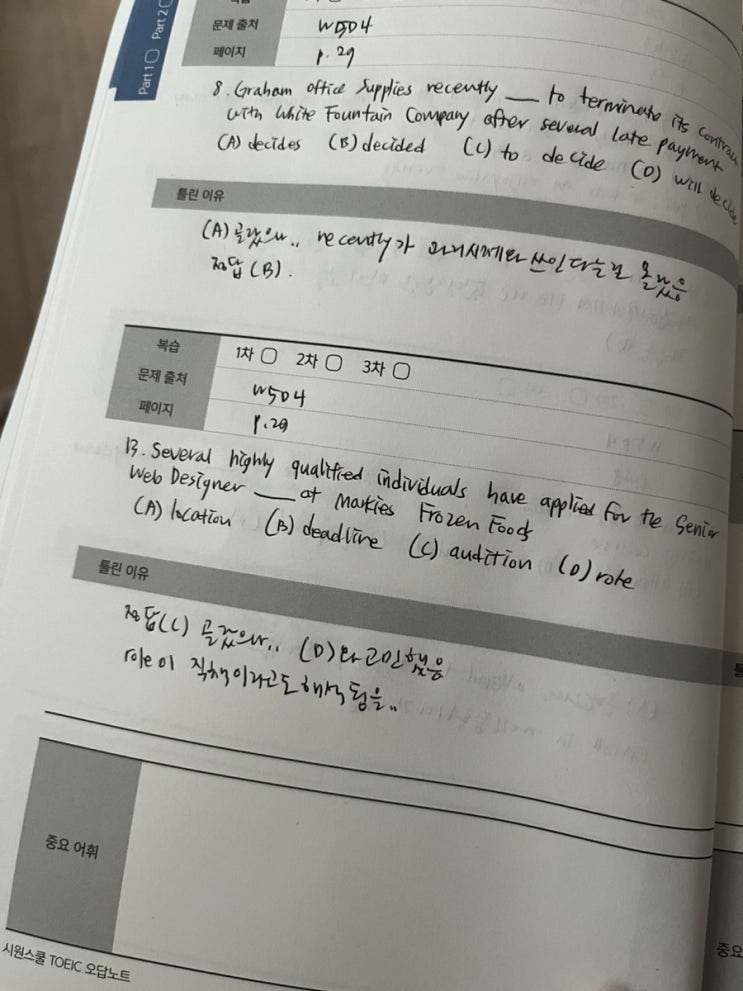 Part 1 Part 2
문제 출처 W504
페이지 P.29
8. Graham office Supplies recently ___ to terminate its contract
with White Fountain Company after several late payment
(A) decides (B) decided (C) to decide (D) will decide
틀린 이유
(A) 골랐으나.. recently가 과거시제와 쓰인다는걸 몰랐음
정답 (B).
복습 1차 2차 3차
문제 출처 W504
페이지 P.29
13. Several highly qualified individuals have applied for the Senior
Web Designer ___ at Markies Frozen Foods
(A) location (B) deadline (C) audition (D) role
틀린 이유
정답(C) 골랐으나.. (D)와 고민했음
role이 직책이라고도 해석됨을..
중요 어휘
시원스쿨 TOEIC 오답노트
중요